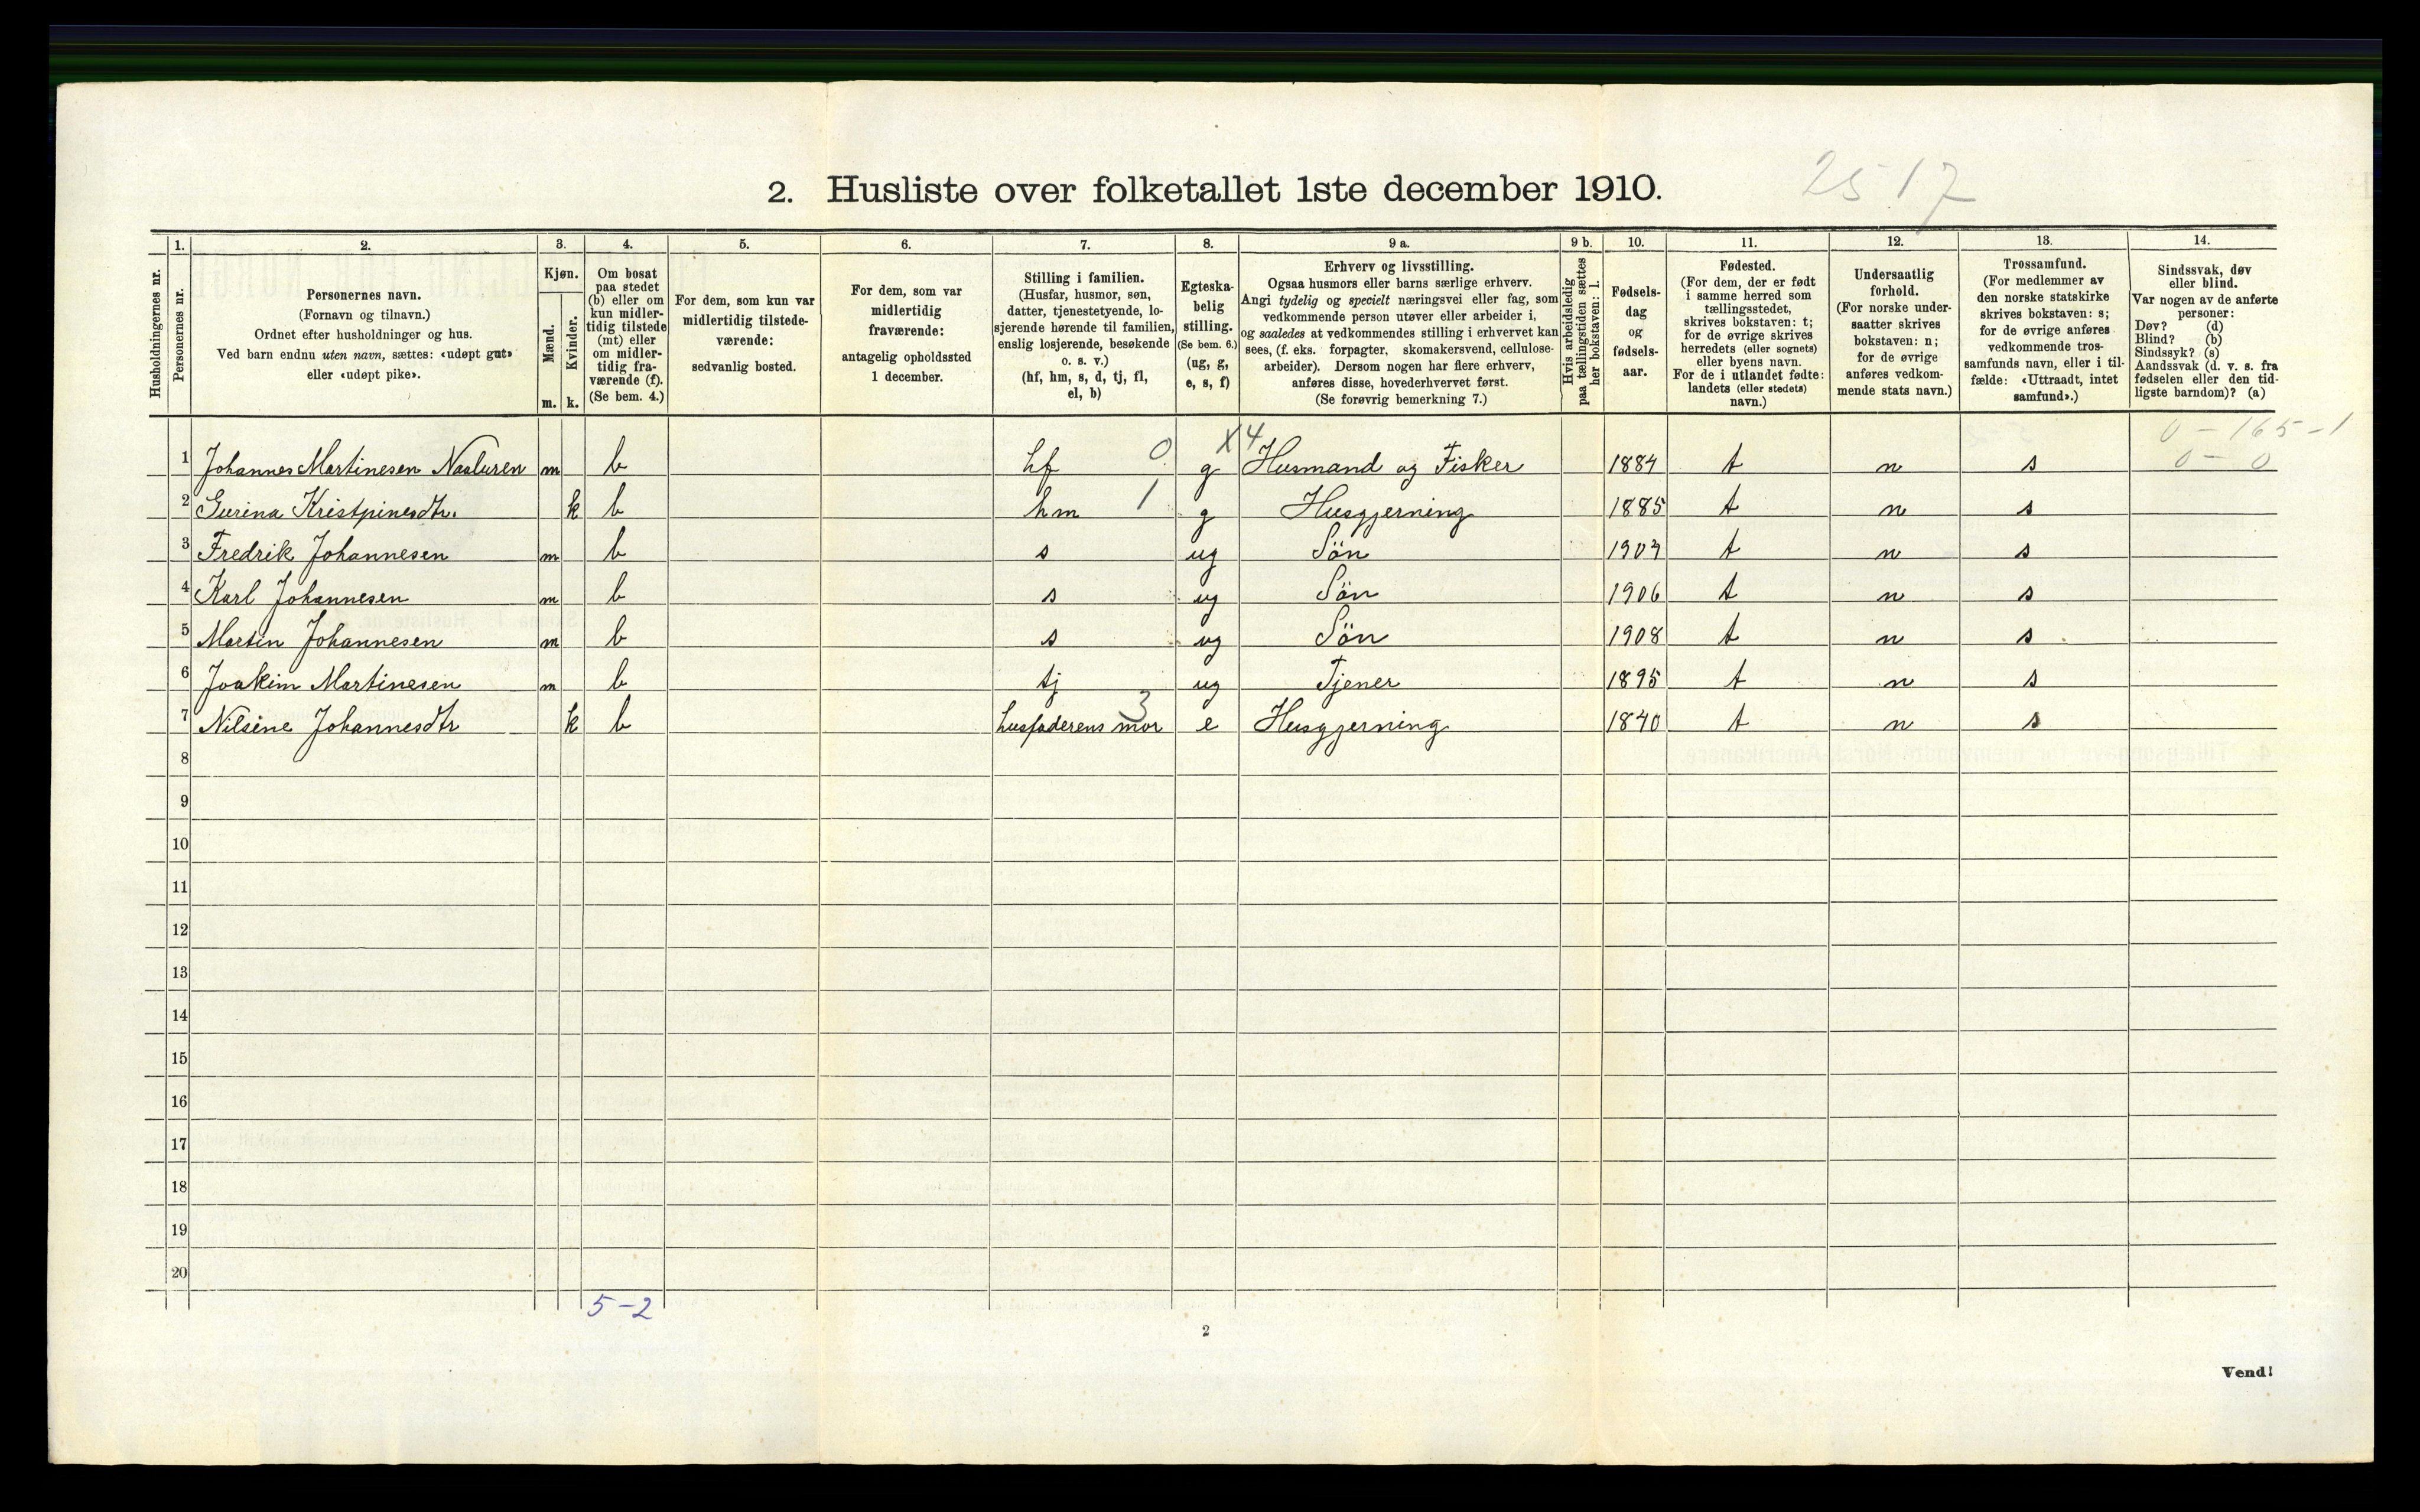 25 17
2. Husliste over folketallet 1ste december 1910.
Husholdningernes nr.
1.
Personernes nr.
2.
Personernes navn.
(Fornavn og tilnavn.)
Ordnet efter husholdninger og hus.
Ved barn endnu uten navn, sættes: «udøpt gut»
eller «udøpt pike».
3.
Kjøn.
Mænd.
Kvinder.
m. k.
4.
Om bosat
paa stedet
(b) eller om
kun midler-
tidig tilstede
(mt) eller
om midler-
tidig fra-
værende (f).
(Se bem. 4.)
5.
For dem, som kun var
midlertidig tilstede-
værende:
sedvanlig bosted.
6.
For dem, som var
midlertidig
fraværende:
antagelig opholdssted
1 december.
7.
Stilling i familien.
(Husfar, husmor, søn,
datter, tjenestetyende, lo-
sjerende hørende til familien,
enslig losjerende, besøkende
o. s. v.)
(hf, hm, s, d, tj, fl,
el, b)
8.
Egteska-
belig
stilling.
(Se bem. 6.)
(ug, g,
e, s, f)
9 a.
Erhverv og livsstilling.
Ogsaa husmors eller barns særlige erhverv.
Angi tydelig og specielt næringsvei eller fag, som
vedkommende person utøver eller arbeider i,
og saaledes at vedkommendes stilling i erhvervet kan
sees, (f. eks. forpagter, skomakersvend, cellulose-
arbeider). Dersom nogen har flere erhverv,
anføres disse, hovederhvervet først.
(Se forøvrig bemerkning 7.)
9 b.
Hvis arbeidsledig
paa tællingstiden sættes
her bokstaven: l.
10.
Fødsels-
dag
og
fødsels-
aar.
11.
Fødested.
(For dem, der er født
i samme herred som
tællingsstedet,
skrives bokstaven: t;
for de øvrige skrives
herredets (eller sognets)
eller byens navn.
For de i utlandet fødte:
landets (eller stedets)
navn.)
12.
Undersaatlig
forhold.
(For norske under-
saatter skrives
bokstaven: n;
for de øvrige
anføres vedkom-
mende stats navn.)
13.
Trossamfund.
(For medlemmer av
den norske statskirke
skrives bokstaven: s;
for de øvrige anføres
vedkommende tros-
samfunds navn, eller i til-
fælde: «Uttraadt, intet
samfund».)
14.
Sindssvak, døv
eller blind.
Var nogen av de anførte
personer:
Døv? (d)
Blind? (b)
Sindssyk? (s)
Aandssvak (d. v. s. fra
fødselen eller den tid-
ligste barndom)? (a)
X4 0-165-1
1 Johannes Martinesen Naaluren m b hf 0 g Husmand og Fisker 1884 t n s 0-0
2 Gurina Kristpinesdtr. k b hm 1 g Husgjerning 1885 t n s
3 Fredrik Johannesen m b s ug Sön t n s
4 Karl Johannesen m b s ug Sön 1906 t n s
5 Martin Johannesen m b s ug Sön 1908 t n s
6 Joakim Martinesen m b tj ug Tjener 1895 t n s
7 Nilsine Johannesdtr k b husfaderens mor 3 e Husgjerning 1840 t n s
8
9
10
11
12
13
14
15
16
17
18
19
20
5-2
2
Vend!